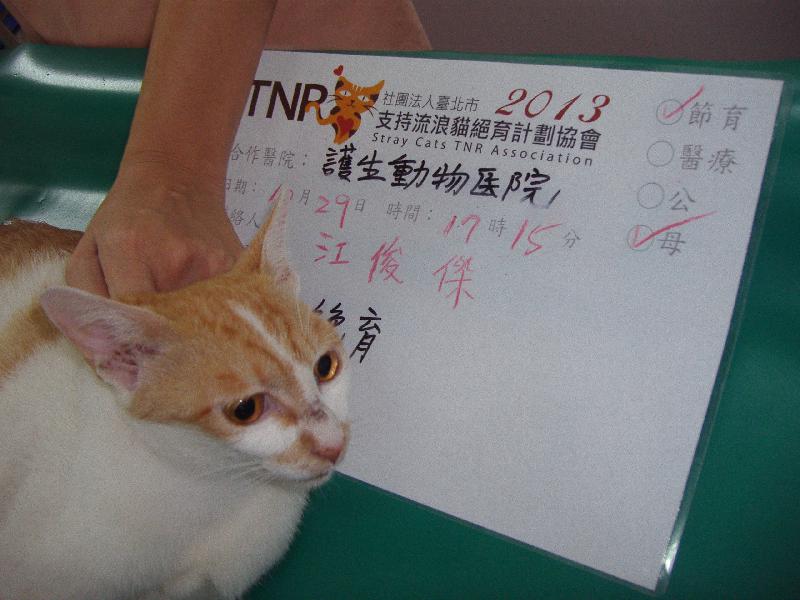 TNR 社團法人臺北市 2013
支持流浪貓絕育計劃協會
Stray Cats TNR Association
合作醫院： 護生動物医院
日期： 月 29 日 時間： 17 時 15 分
絡人 江俊傑
絕育
節育
醫療
公
母